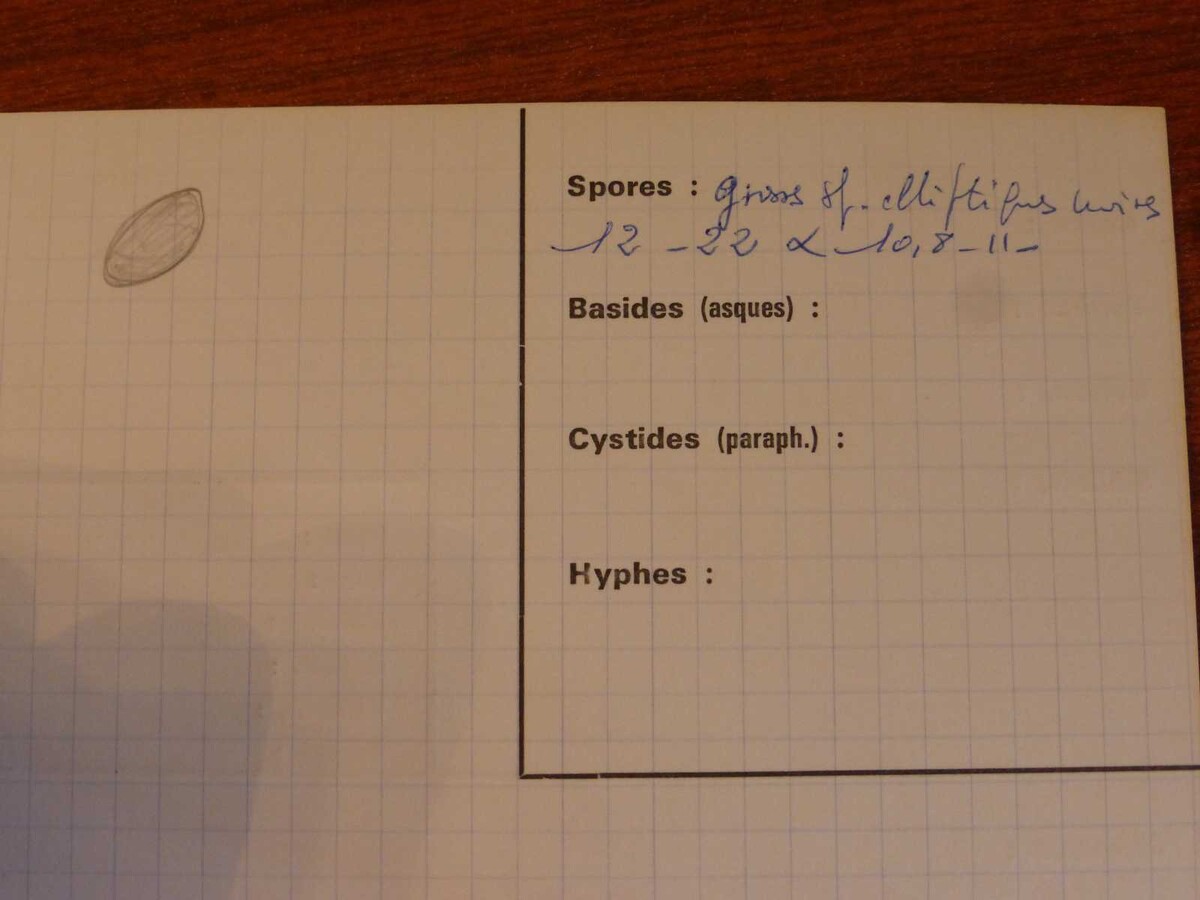 Spores : Grosses sp. elliptiques noires
12 - 22 x 10,8 - 11 -
Basides (asques) :
Cystides (paraph.) :
Hyphes :